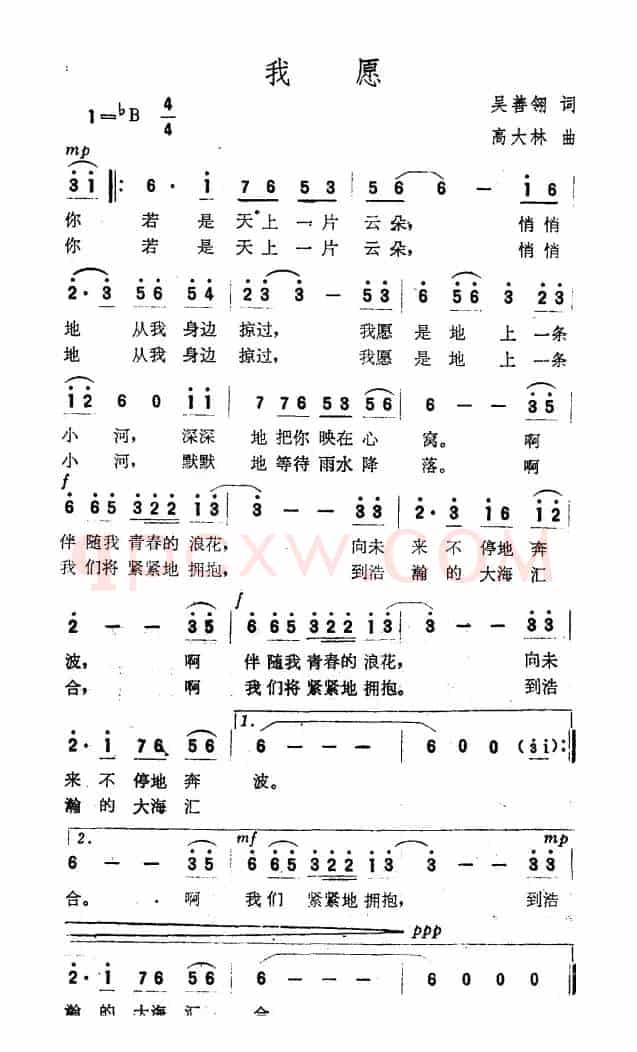 我 愿
1=♭B 4/4
吴善翎 词
高大林 曲
mp
3 1 ‖: 6 · 1 7 6 5 3 | 5 6 6 － 1 6 |
你 若 是 天上 一 片 云 朵， 悄悄
你 若 是 天上 一 片 云 朵， 悄悄
2 · 3 5 6 5 4 | 2 3 3 － 5 3 | 6 5 6 3 2 3 |
地 从我 身边 掠过， 我愿 是 地 上 一条
地 从我 身边 掠过， 我愿 是 地 上 一条
1 2 6 0 1 1 | 7 7 6 5 3 5 6 | 6 － － 3 5 |
小 河， 深深 地 把你 映在 心 窝。 啊
小 河， 默默 地 等待 雨水 降 落。 啊
f
6 6 5 3 2 2 1 3 | 3 － － 3 3 | 2 · 1 1 6 1 2 |
伴 随我 青春的 浪花， 向未 来 不 停地 奔
我 们将 紧紧地 拥抱， 到浩 瀚 的 大海 汇
qpcxw.COM
f
2 － － 3 5 | 6 6 5 3 2 2 1 3 | 3 － － 3 3 |
波， 啊 伴 随我 青春的 浪花， 向未
合， 啊 我 们将 紧紧地 拥抱。 到浩
1.
2 · 1 7 6 5 6 | 6 － － － | 6 0 0 (3 1) :‖
来 不 停地 奔 波。
瀚 的 大海 汇
2. mf mp
6 － － 3 5 | 6 6 5 3 2 2 1 3 | 3 － － 3 3 |
合。 啊 我 们 紧紧地 拥抱， 到浩
ppp
2 · 1 7 6 5 6 | 6 － － － | 6 0 0 0 ‖
瀚 的 大海 汇 合